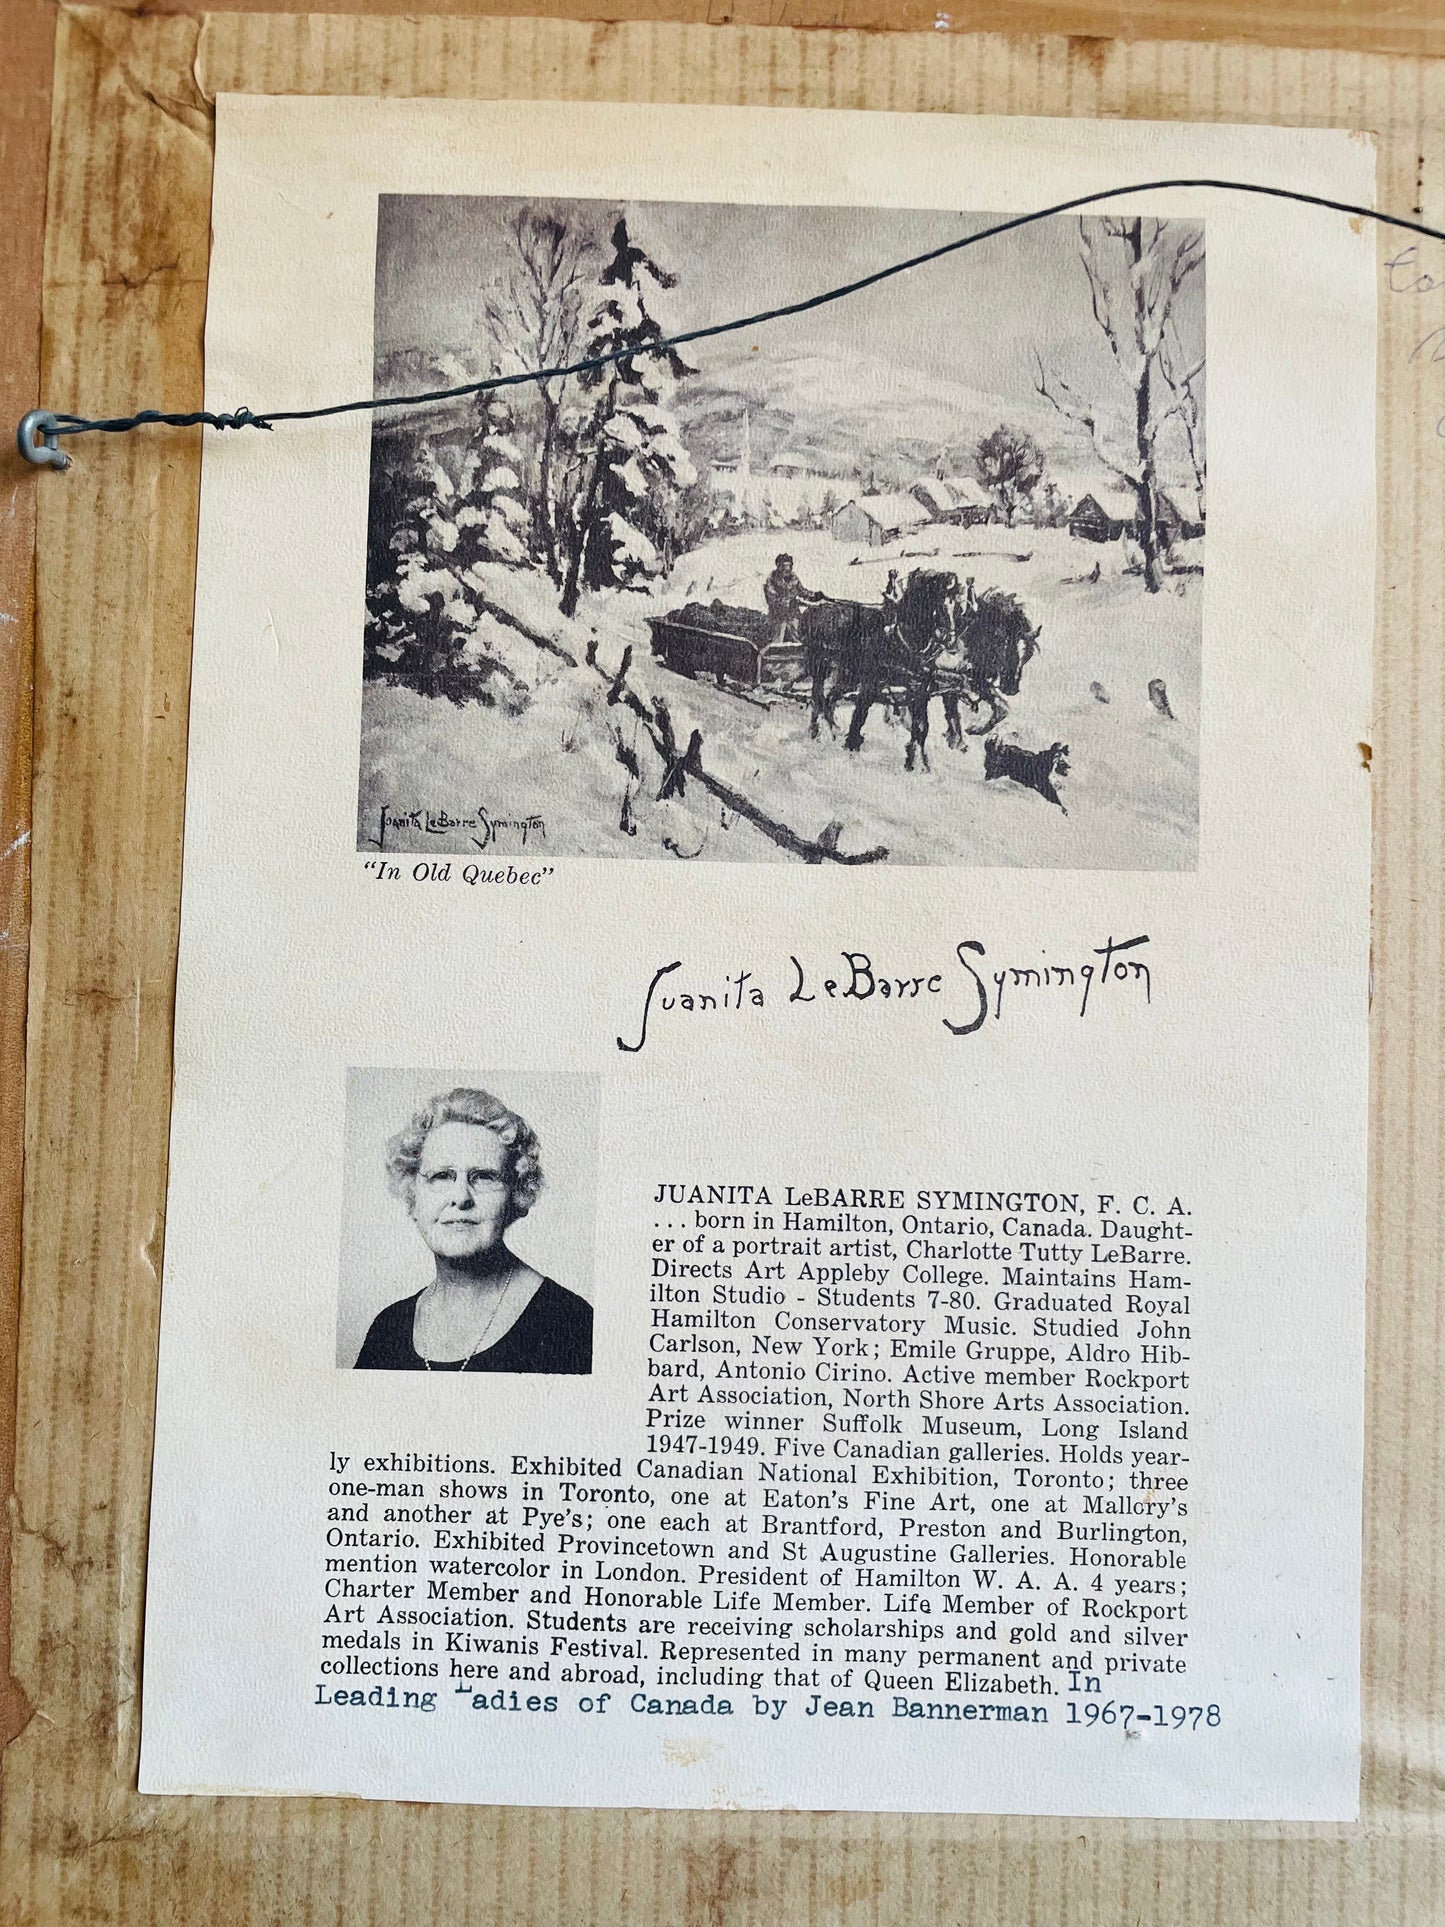 Juanita LeBarre Symington
"In Old Quebec"
Juanita LeBarre Symington
JUANITA LeBARRE SYMINGTON, F. C. A.
... born in Hamilton, Ontario, Canada. Daught-
er of a portrait artist, Charlotte Tutty LeBarre.
Directs Art Appleby College. Maintains Ham-
ilton Studio - Students 7-80. Graduated Royal
Hamilton Conservatory Music. Studied John
Carlson, New York; Emile Gruppe, Aldro Hib-
bard, Antonio Cirino. Active member Rockport
Art Association, North Shore Arts Association.
Prize winner Suffolk Museum, Long Island
1947-1949. Five Canadian galleries. Holds year-
ly exhibitions. Exhibited Canadian National Exhibition, Toronto; three
one-man shows in Toronto, one at Eaton's Fine Art, one at Mallory's
and another at Pye's; one each at Brantford, Preston and Burlington,
Ontario. Exhibited Provincetown and St Augustine Galleries. Honorable
mention watercolor in London. President of Hamilton W. A. A. 4 years;
Charter Member and Honorable Life Member. Life Member of Rockport
Art Association. Students are receiving scholarships and gold and silver
medals in Kiwanis Festival. Represented in many permanent and private
collections here and abroad, including that of Queen Elizabeth. In
Leading Ladies of Canada by Jean Bannerman 1967-1978